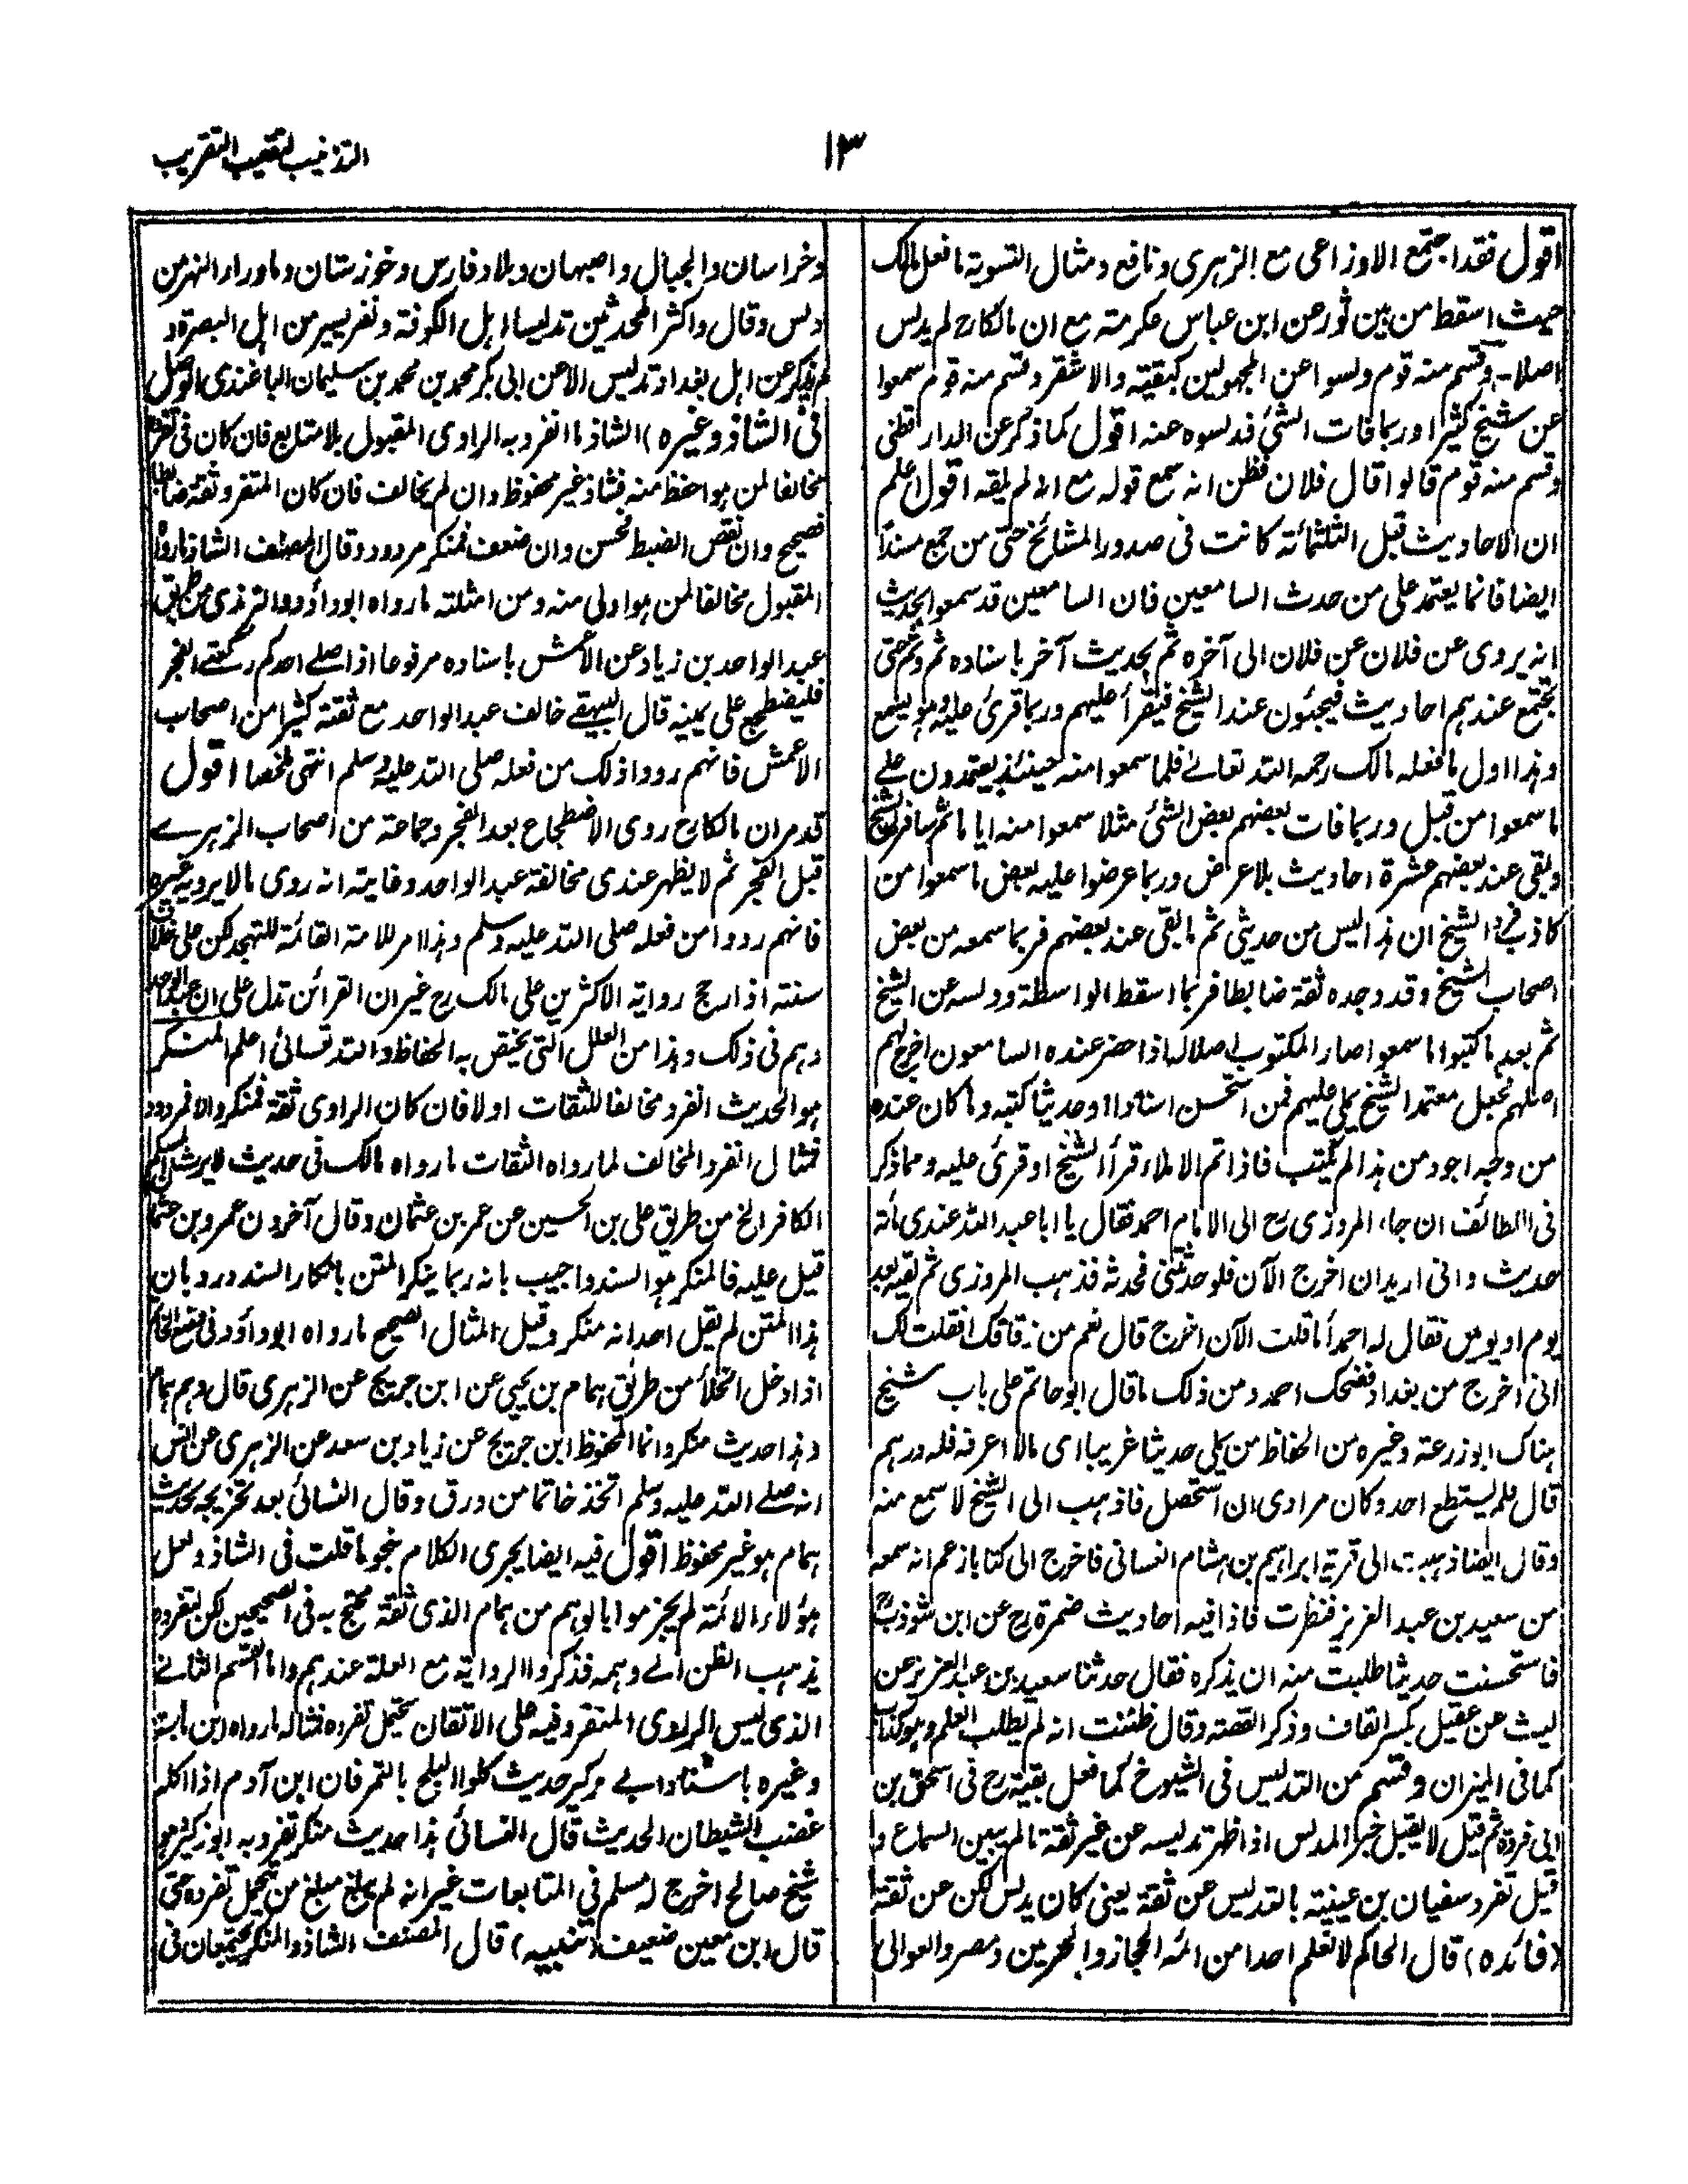 ١٣
التذنيب لتعقيب التقريب
اقول فقد اجتمع الاوزاعى مع الزهرى ونافع ومثال التسوية ما فعل مالك
حيث اسقط من بين ثور عن ابن عباس عكرمته مع ان مالكا رح لم يدلس
اصلا وقسم منه قوم دلسوا عن المجهولين كبقية والاشقر وقسم منه قوم سمعوا
عن شيخ كثيرا وربما فات الشئ فدلسوه عنه اقول كما ذكر عن الدارقطنى
وقسم منه قوم قالوا قال فلان فظن انه سمع قوله مع انه لم يلقه اقول اعلم
ان الاحاديث قبل الثلثمائة كانت فى صدور المشائخ حتى من جمع مسندا
ايضا فانما يعتمد على من حدث السامعين فان السامعين قد سمعوا الحديث
انه يروى عن فلان عن فلان الى آخره ثم بحديث آخر باسناده ثم وثم حتى
يجتمع عندهم احاديث فيجيئون عند الشيخ فيقرأ عليهم وربما قرئ عليه وهو يسمع
وهذا اول ما فعله مالك رحمه الله تعالى فلما سمعوا منه حينئذ يعتمدون على
ما سمعوا من قبل وربما فات بعضهم بعض الشئ مثلا سمعوا منه اياما ثم سافر الشيخ
وبقى عند بعضهم عشرة احاديث بلا عرض وربما عرضوا عليه بعض ما سمعوا من
كاذب الشيخ ان هذا ليس من حديثى ثم ما بقى عند بعضهم فربما سمعه من بعض
اصحاب الشيخ وقد وجده ثقة ضابطا فربما اسقط الواسطة ودلسه عن الشيخ
ثم بعد ما كتبوا ما سمعوا صار المكتوب اصلا لها اذا حضر عنده السامعون اخرج لهم
اصلهم فجعل معتمد الشيخ يملى عليهم فمن استحسن اسنادا او حديثا كتبه وما كان عنده
من وجه اجود من هذا لم يكتب فاذا تم الاملاء قرأ الشيخ او قرئ عليه ومما ذكر
فى الطائف ان جاء المروزى رح الى الامام احمد فقال يا ابا عبد الله عندى مأته
حديث وانى اريد ان اخرج الآن فلو حدثتنى فحدثه فذهب المروزى ثم لقيه بعد
يوم او يومين فقال له احمد أما قلت الآن اخرج قال نعم من زقاقك افقلت لك
انى اخرج من بغداد فضحك احمد ومن ذلك ما قال ابو حاتم على باب شيخ
هناك ابو زرعة وغيره من الحفاظ من يملى حديثا غريبا اى ما لا اعرفه فله درهم
قال فلم يستطع احد وكان مرادى ان استحصل فاذهب الى الشيخ لاسمع منه
وقال ايضا ذهبت الى قرية ابراهيم بن هشام الغسانى فاخرج الى كتابا زعم انه سمعه
من سعيد بن عبد العزيز فنظرت فاذا فيه احاديث ضمرة رح عن ابن شوذب
فاستحسنت حديثا طلبت منه ان يذكره فقال حدثنا سعيد بن عبد العزيز عن
ليث عن عقيل بكسر القاف وذكر القصة وقال ظننت انه لم يطلب العلم وهو كذاب
كما فى الميزان وقسم من التدليس فى الشيوخ كما فعل بقية رح فى اسحق بن
ابى فروة ثم قيل لا يقبل خبر المدلس اذا ظهر تدليسه عن غير ثقة ما لم يبين السماع و
قيل تفرد سفيان بن عيينة بالتدليس عن ثقة يعنى كان يدلس لكن عن ثقة
(فائده) قال الحاكم لا نعلم احدا من ائمه الحجاز والحرمين ومصر والعوالى
وخراسان والجبال واصبهان وبلاد فارس وخوزستان وماوراء النهر من
دلس وقال واكثر المحدثين تدليسا اهل الكوفة ونفر يسير من اهل البصرة و
لم يذكر عن اهل بغداد تدليس الا عن ابى بكر محمد بن محمد بن سليمان الباغندى الوصل
فى الشاذ وغيره) الشاذ ما انفرد به الراوى المقبول بلا متابع فان كان فى تفرده
مخالفا لمن هو احفظ منه فشاذ غير محفوظ وان لم يخالف فان كان المتفرد ثقة ضابطا
فصحيح وان نقص الضبط فحسن وان ضعف فمنكر مردود وقال المصنف الشاذ ما رواه
المقبول مخالفا لمن هو اولى منه ومن امثلته ما رواه ابو داؤد والترمذى من طريق
عبد الواحد بن زياد عن الاعمش باسناده مرفوعا اذا صلى احدكم ركعتى الفجر
فليضطجع على يمينه قال البيهقى خالف عبد الواحد مع ثقته كثيرا من اصحاب
الاعمش فانهم رووا ذلك من فعله صلى الله عليه وسلم انتهى ملخصا اقول
قد مر ان مالكا رح روى الاضطجاع بعد الفجر وجماعة من اصحاب الزهرى
قبل الفجر ثم لا يظهر عندى مخالفة عبد الواحد وغايته انه روى ما لا يرويه غيره
فانهم رووا من فعله صلى الله عليه وسلم وهذا امر للامة القائمة للتهجد لكن على خلاف
سنته اذا رجح رواية الاكثرين على مالك رح غير ان القرائن تدل على ان عبد الواحد
وهم فى ذلك وهذا من العلل التى يختص به الحفاظ والله تعالى اعلم المنكر
هو الحديث الفرد مخالفا للثقات اولا فان كان الراوى ثقة فمنكر والا فمردود
فمثال الفرد المخالف لما رواه الثقات ما رواه مالك فى حديث لا يرث المسلم
الكافر الخ من طريق على بن الحسين عن عمر بن عثمان وقال آخرون عمرو بن عثمان
قيل عليه فالمنكر هو السند واجيب بانه ربما ينكر المتن بانكار السند ورد بان
هذا المتن لم يقل احد انه منكر وقيل المثال الصحيح ما رواه ابو داؤد فى وضع الخاتم
اذا دخل الخلأ من طريق همام بن يحيى عن ابن جريج عن الزهرى قال وهم همام
وهذا حديث منكر وانما المحفوظ ابن جريج عن زياد بن سعد عن الزهرى عن انس
انه صلى الله عليه وسلم اتخذ خاتما من ورق وقال النسائى بعد تخريجه بحديث
همام هو غير محفوظ اقول فيه ايضا يجرى الكلام بنحو ما قلت فى الشاذ ولعل
هؤلاء الائمة لم يجزموا بالوهم من همام الذى ثقة محتج به فى الصحيحين لكن لتفرده
يذهب الظن الى وهمه فذكروا الرواية مع العلة عندهم واما القسم الثانى
الذى ليس الراوى المتفرد فيه على الاتقان يحتمل تفرده فمثاله ما رواه ابن ماجة
وغيره باسناد ابى زكير حديث كلوا البلح بالتمر فان ابن آدم اذا اكله
غضب الشيطان الحديث قال النسائى هذا حديث منكر تفرد به ابو زكير هو
شيخ صالح اخرج له مسلم فى المتابعات غير انه لم يبلغ مبلغ من يحتمل تفرده حتى
قال ابن معين ضعيف (تنبيه) قال المصنف الشاذ والمنكر يجتمعان فى